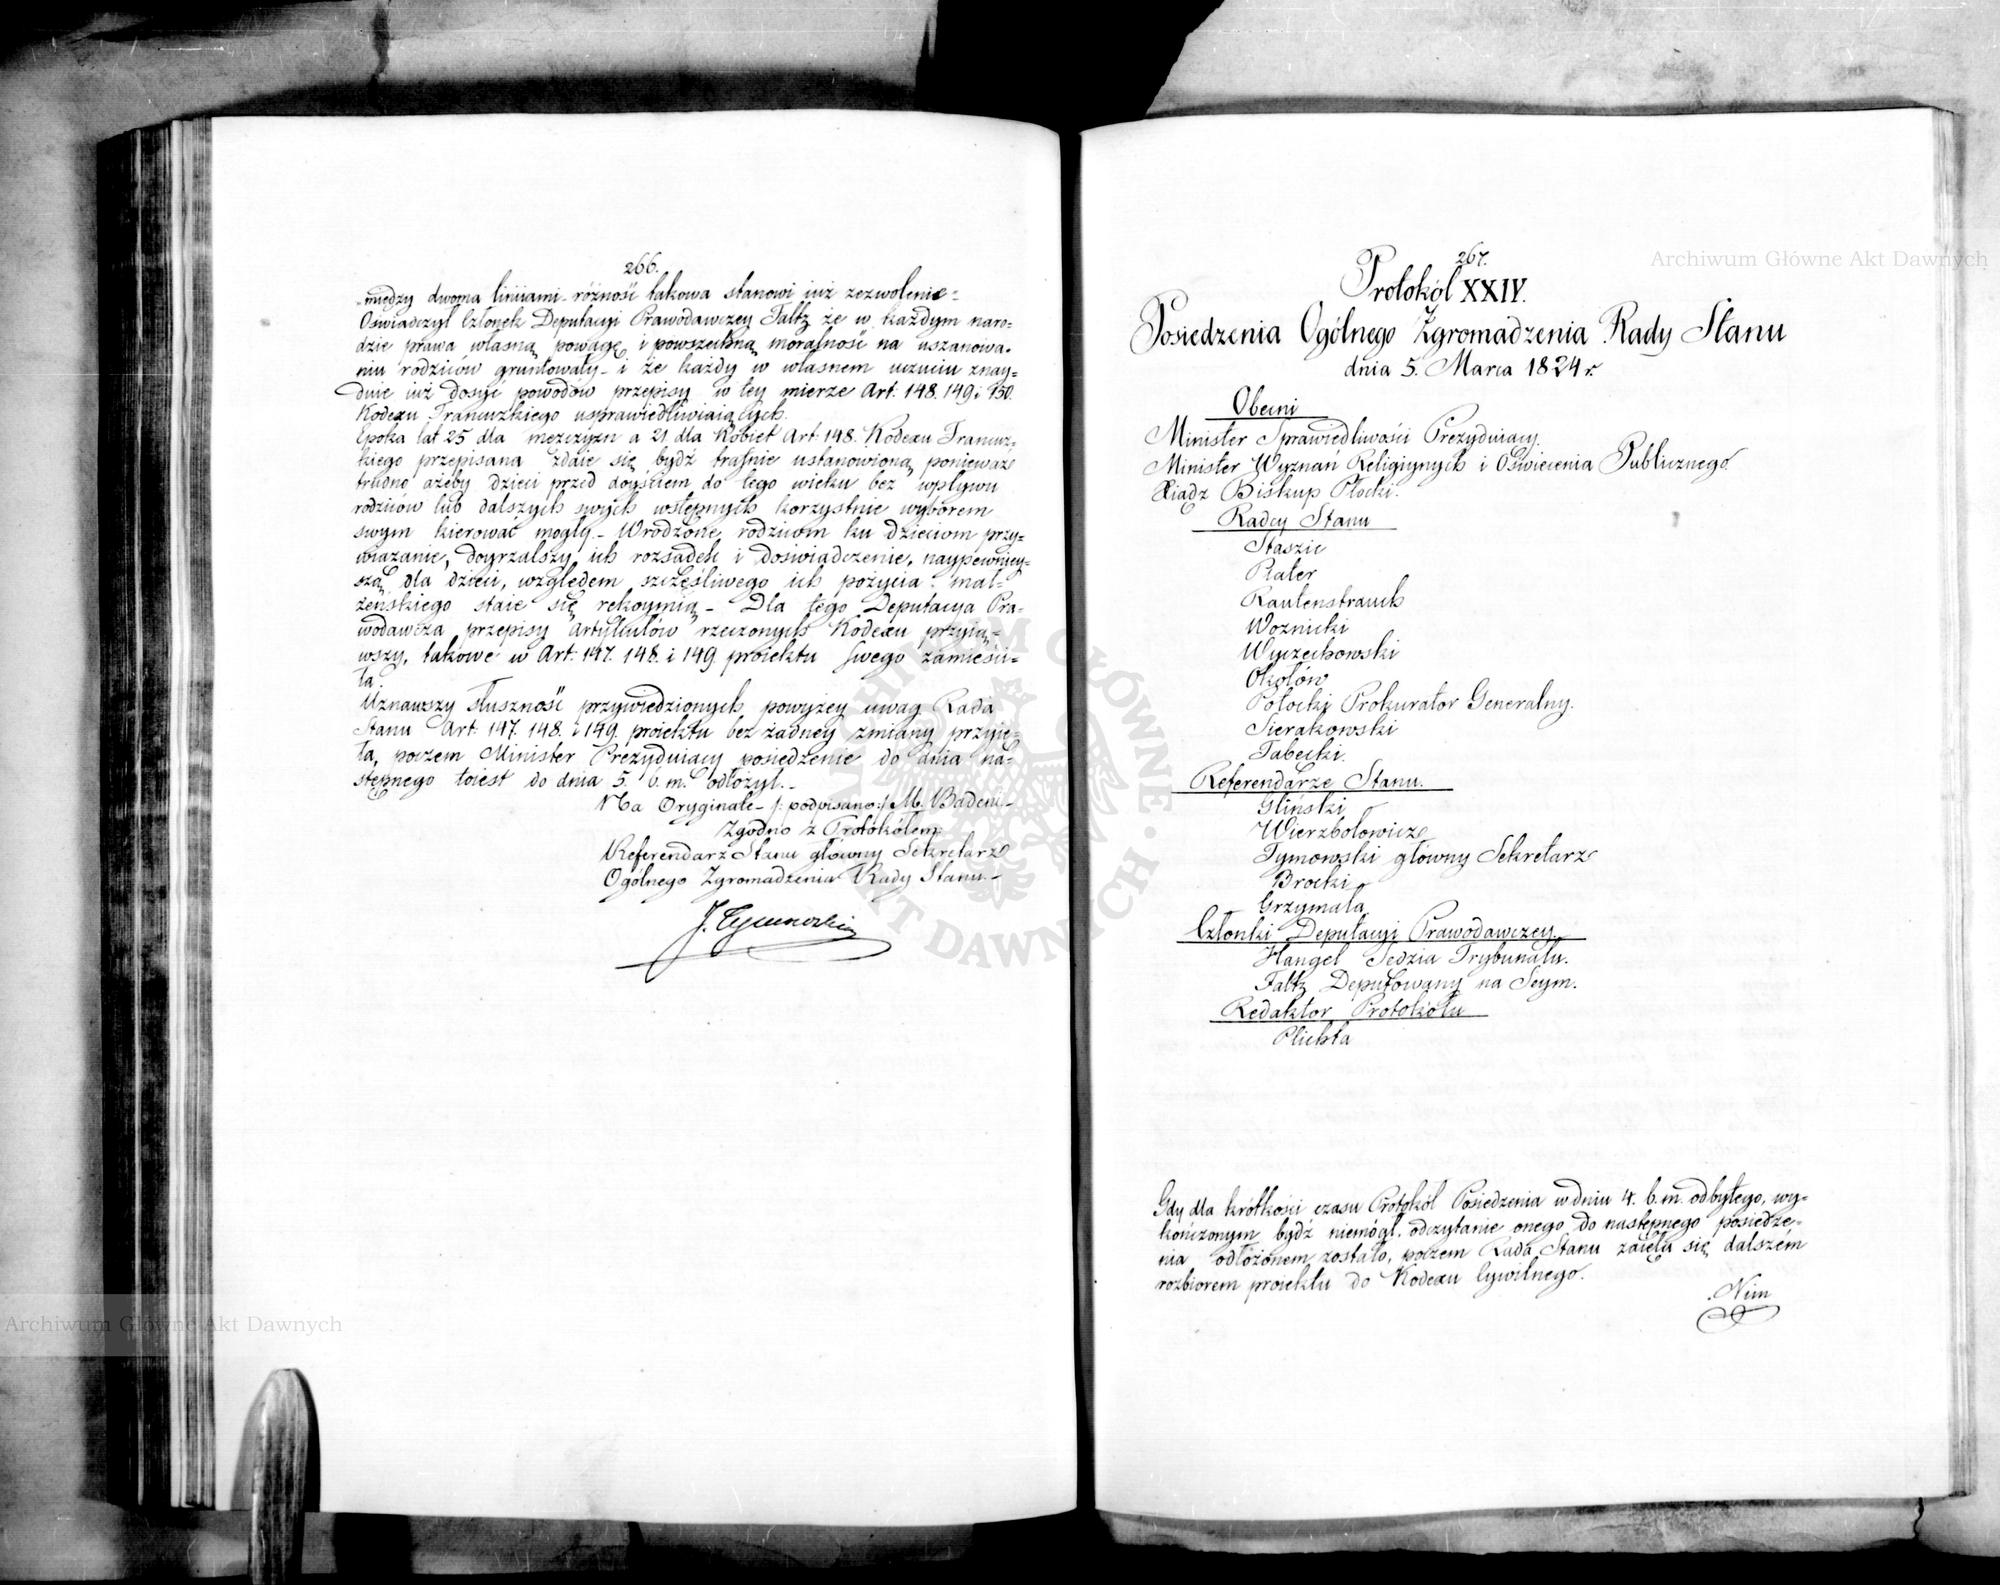 266.
-między dwoma liniiami - różność takowa stanowi iuż zezwolenie=
Oświadczył Członek Deputacyi Prawodawczey Faltz że w każdym naro-
dzie prawa własną powagę i powszechną moralność na uszanowa-
niu rodziców gruntowały - i że każdy w własnem uczuciu znay-
duie iuż dosyć powodów przepisy w tey mierze Art: 148. 149 i 150.
Kodexu Francuzkiego usprawiedliwiaiących.
Epoka lat 25 dla męzczyzn a 21 dla Kobiet Art: 148. Kodexu Francuz-
kiego przepisana zdaie się bydź trafnie ustanowioną ponieważ
trudno ażeby dzieci przed doyściem do tego wieku bez wpływu
rodziców lub dalszych swych wstępnych korzystnie wyborem
swym kierować mogły. - Wrodzone rodzicom ku dzieciom przy-
wiązanie, doyrzalszy ich rozsądek i doświadczenie, naypewniey-
szą dla dzieci, względem szczęśliwego ich pożycia mał-
żeńskiego staie się rękoymią - Dla tego Deputacya Pra-
wodawcza przepisy artykułów rzeczonych Kodexu przyią-
wszy, takowe w Art: 147. 148. i 149 proiektu swego zamieści-
ła.
Uznawszy słuszność przywiedzionych powyżey uwag Rada
Stanu Art: 147. 148. i 149. proiektu bez żadney zmiany przyię-
ła, poczem Minister Prezyduiący posiedzenie do dnia na-
stępnego toiest do dnia 5. b. m. odłożył. -
Na Oryginale - /: podpisano :/ M. Badeni -
Zgodno z Protokółem
Referendarz Stanu główny Sekretarz
Ogólnego Zgromadzenia Rady Stanu -
J. Tymowski
267.
Protokół XXIV.
Posiedzenia Ogólnego Zgromadzenia Rady Stanu
dnia 5. Marca 1824 r.
Obecni
Minister Sprawiedliwości Prezyduiący.
Minister Wyznań Religiynych i Oświecenia Publicznego.
Xiądz Biskup Płocki.
Radcy Stanu
Staszic
Plater
Rautenstrauch
Woznicki
Wyczechowski
Okołów
Potocki Prokurator Generalny.
Sierakowski
Fabecki.
Referendarze Stanu.
Gliński
Wierzbołowicz
Tymowski główny Sekretarz
Brocki
Grzymała
Członki Deputacyi Prawodawczey
Hangel Sędzia Trybunału.
Faltz Deputowany na Seym.
Redaktor Protokółu
Plichta
Gdy dla krótkości czasu Protokół Posiedzenia w dniu 4. b. m. odbytego, wy-
kończonym bydź niemógł, odczytanie onego do następnego posiedze-
nia odłożonem zostało, poczem Rada Stanu zaięła się dalszém
rozbiorem proiektu do Kodexu Cywilnego.
Nim
Archiwum Główne Akt Dawnych
Archiwum Główne Akt Dawnych
ARCHIWUM GŁÓWNE AKT DAWNYCH